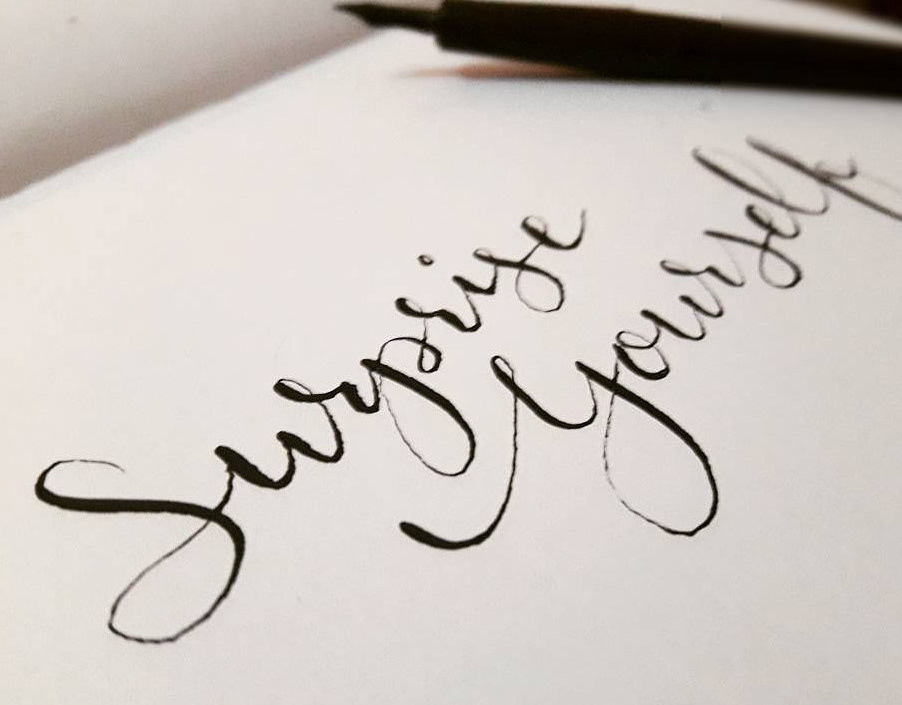 Surprise
Yourself